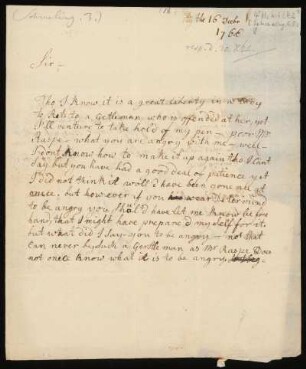 the 16 Debr
1766
Sir -
Tho I Know it is a great liberty in
to state to a Gentleman who is offended at her, yet
I'll venture to take hold of my pen - poor Mr
Raspe - what you are angry with me - well
I dont know how to make it up again tho I cant
say but you have had a good deal of patience yet
I did not think it would have been gone all at
once, but however if you wear determine
to be angry you should have let me know be fore
hand, that I might have prepare'd myself for it,
but what did I say - you to be angry - not that
can never be, such a Gentleman as Mr Raspe Does
not once know what it is to be angry